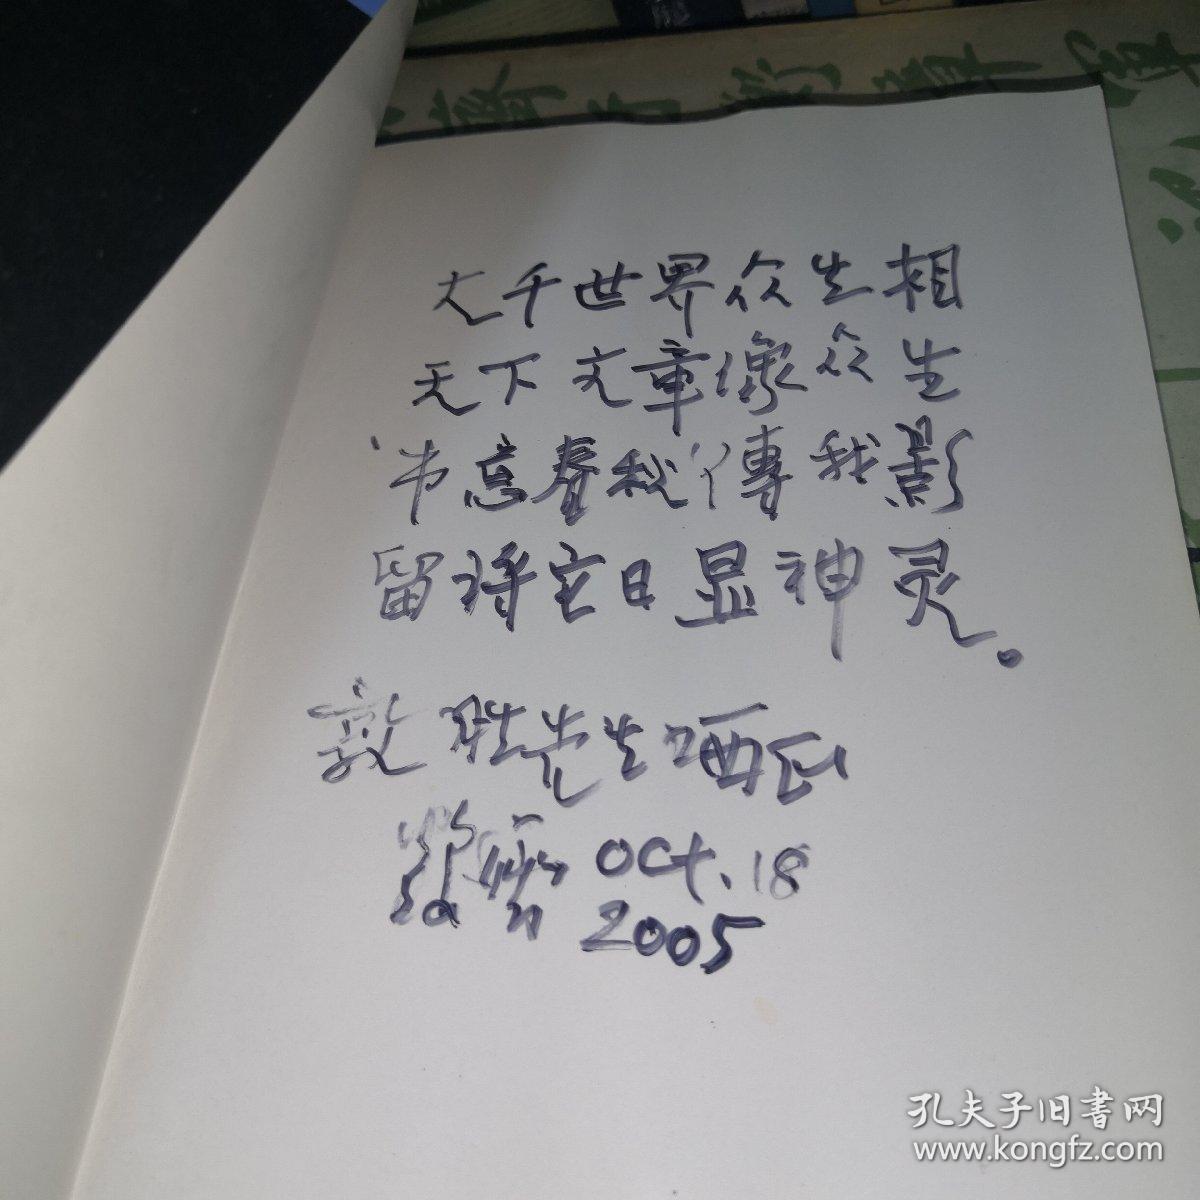 大千世界众生相
天下文章像众生
书意春秋传我影
留待它日显神灵。
敦胜先生哂正
Oct. 18
2005
孔夫子旧書网
www.kongfz.com